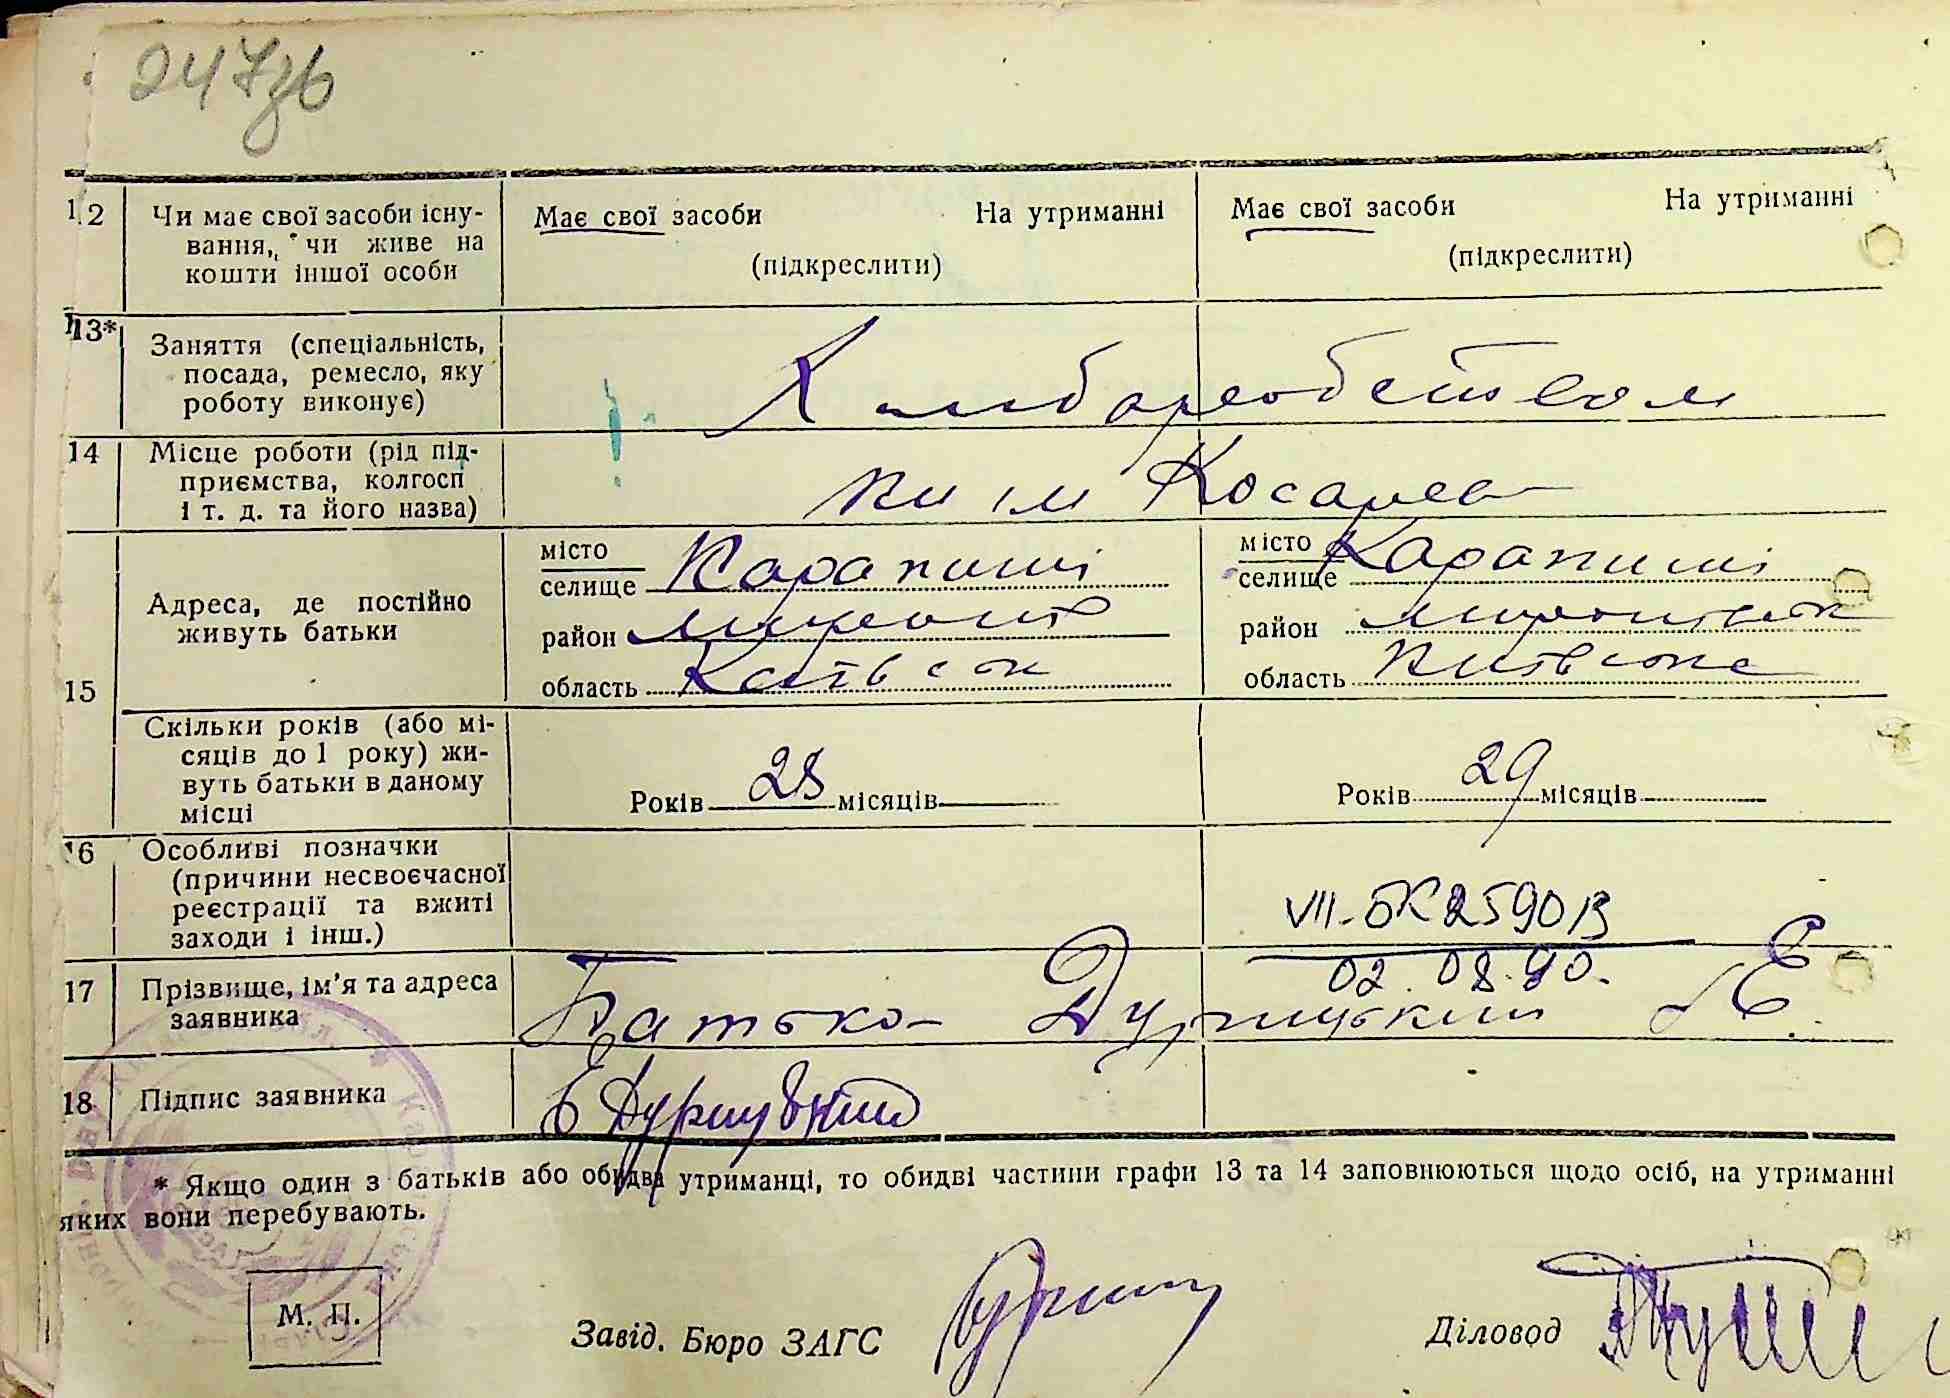 247зв
12 Чи має свої засоби існу-
вання, чи живе на
кошти іншої особи
Має свої засоби На утриманні
(підкреслити)
Має свої засоби На утриманні
(підкреслити)
13* Заняття (спеціальність,
посада, ремесло, яку
роботу виконує)
14 Місце роботи (рід під-
приємства, колгосп
і т. д. та його назва)
ім Косарева
15 Адреса, де постійно
живуть батьки
місто
селище Карапиші
район
область
місто
селище Карапиші
район
область Київська
Скільки років (або мі-
сяців до 1 року) жи-
вуть батьки в даному
місці
Років 28 місяців
Років 29 місяців
16 Особливі позначки
(причини несвоєчасної
реєстрації та вжиті
заходи і інш.)
VII-БК 259013
02.08.90.
17 Прізвище, ім'я та адреса
заявника
Батько
18 Підпис заявника
* Якщо один з батьків або обидва утриманці, то обидві частини графи 13 та 14 заповнюються щодо осіб, на утриманні
яких вони перебувають.
М. П.
Завід. Бюро ЗАГС
Діловод